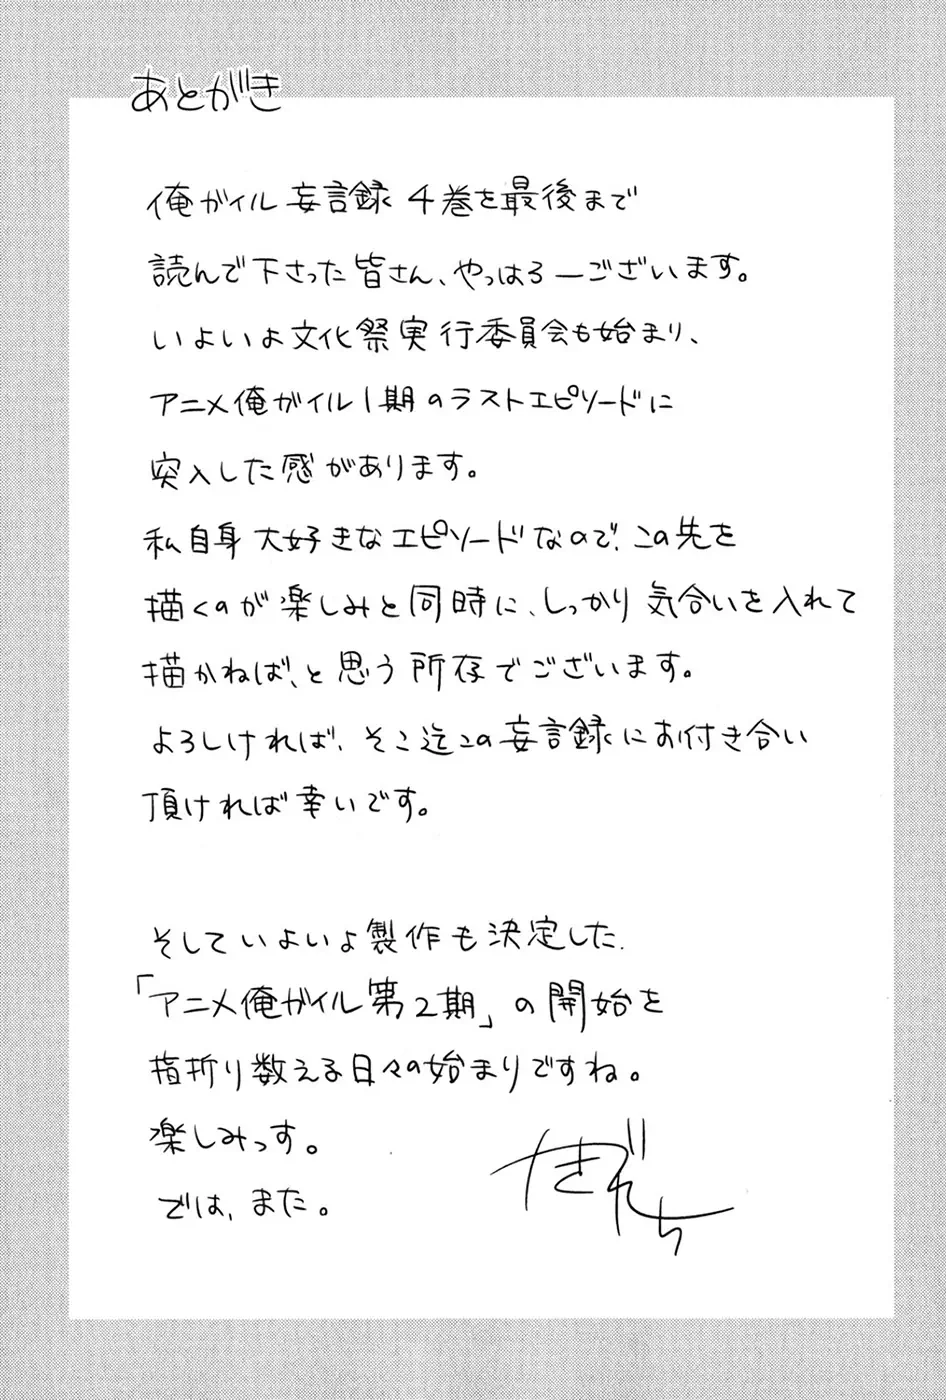 あとがき
俺ガイル 妄言録 4巻を最後まで
読んで下さった皆さん、やっはろーございます。
いよいよ文化祭実行委員会も始まり、
アニメ俺ガイル1期のラストエピソードに
突入した感があります。
私自身大好きなエピソードなので、この先を
描くのが楽しみと同時に、しっかり気合いを入れて
描かねば、と思う所存でございます。
よろしければ、そこ迄この妄言録にお付き合い
頂ければ幸いです。
そしていよいよ製作も決定した、
「アニメ俺ガイル第2期」の開始を
指折り数える日々の始まりですね。
楽しみっす。
では、また。